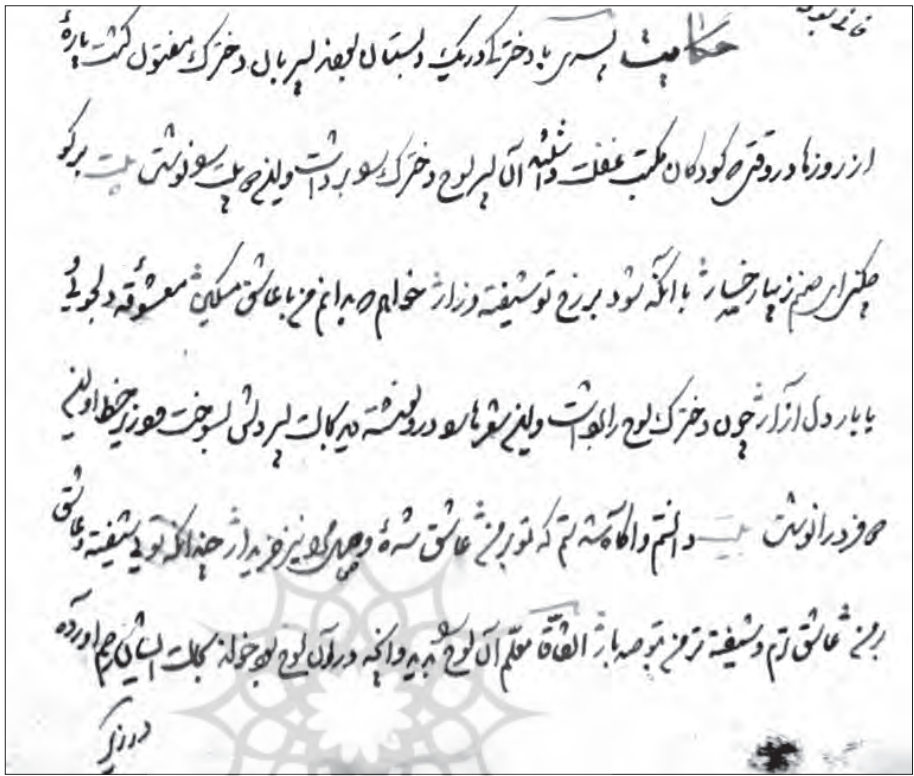 حکایت پسری با دخترکی در یک دبستان بودند پسر بان دخترک مفتون گشت پارهٔ
از روزها در وقتی که کودکان مکتب غفلت داشتند آن پسر لوح دخترک برداشت و این بیت نوشت بیت برگو
چکنم ای صنم زیبا رخسار با آنکه شود بر رخ تو شیفته و زار خواهم که بدانم من با عاشق مسکین معشوقه دلجوئی
یا یار دل ازار چون دخترک لوح را برداشت و این شعرها درو نوشته دید بحالت پسر دلش بسوخت و در زیر خط او این
دو فرد را نوشت بیت دانستم و آگاه شدستم که تو بر من عاشق شدهٔ و مهر مرا نیز خریدار چندانکه توئی شیفته و عاشق
بر من عاشق ترم و شیفته تر من بتو صد بار اتفاقا معلم آن لوح بدید و آنچه در آن لوح بود بخواند بحالت ایشان رحم آورده
در زیر